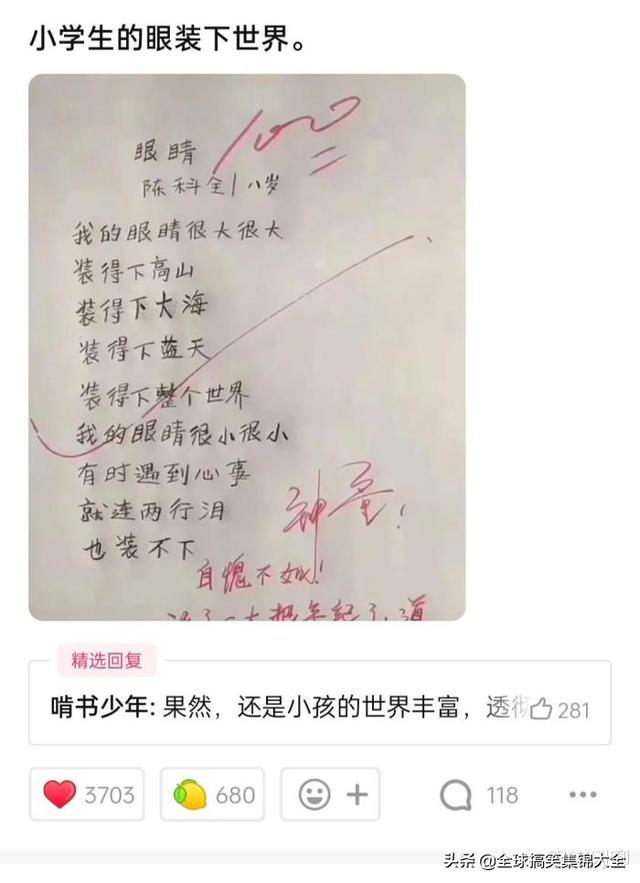 小学生的眼装下世界。
100
眼睛
陈科全 八岁
我的眼睛很大很大
装得下高山
装得下大海
装得下蓝天
装得下整个世界
我的眼睛很小很小
有时遇到心事
就连两行泪
也装不下
神童!
自愧不如!
精选回复
啃书少年: 果然，还是小孩的世界丰富，透彻
281
3703
680
118
头条 @全球搞笑集锦大全